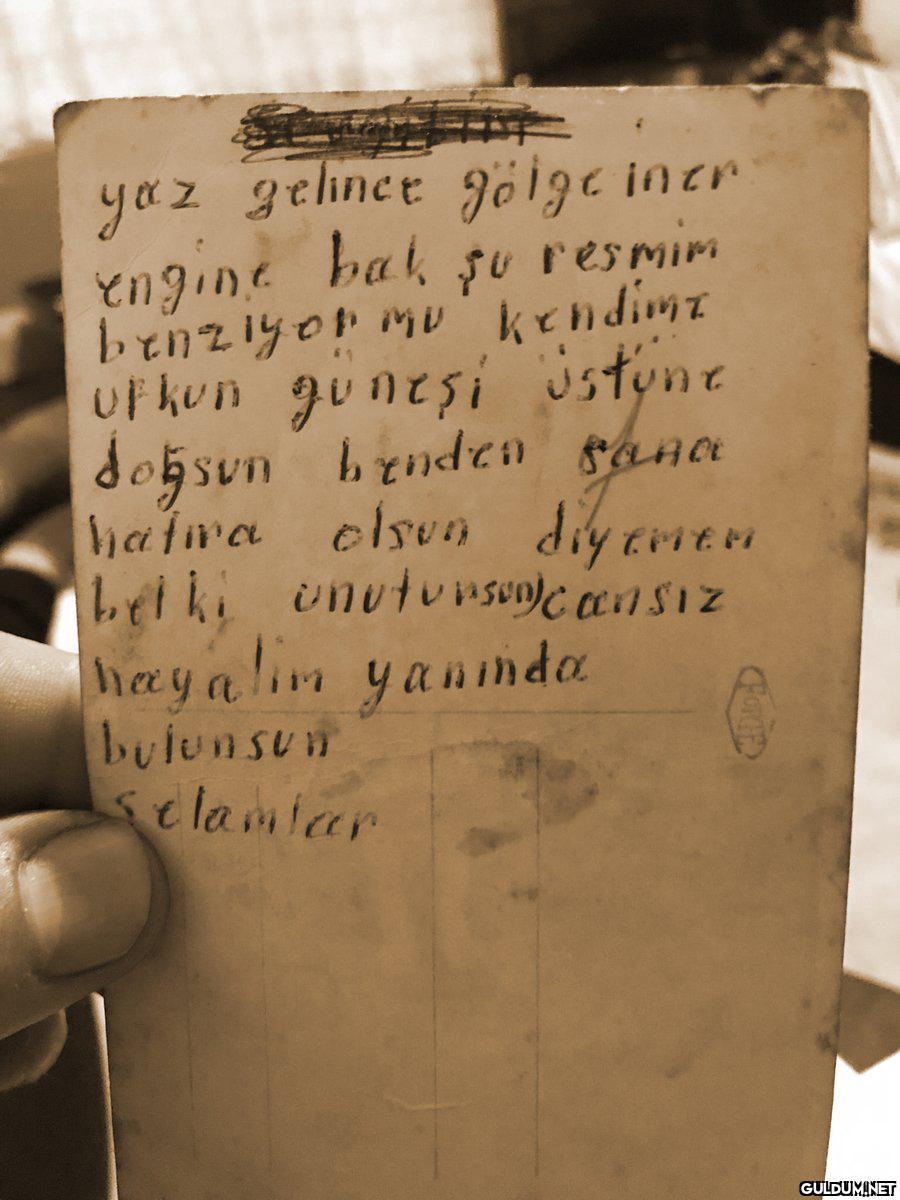 yaz gelince gölge iner
engine bak şu resmim
benziyor mu kendime
ufkun güneşi üstüne
doğsun benden sana
hatıra olsun diyemem
belki unutursun) cansız
hayalim yanında
bulunsun
selamlar
GULDUM.NET